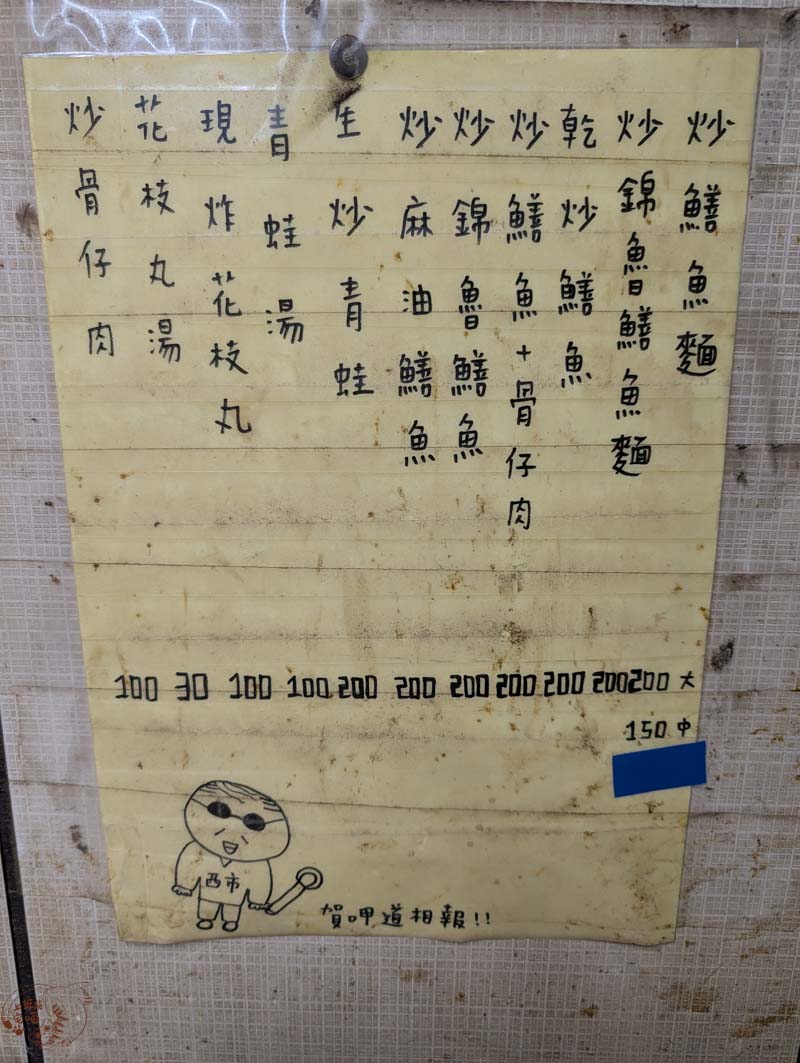 炒鱔魚麵 200大 150中
炒錦魯鱔魚麵 200
乾炒鱔魚 200
炒鱔魚+骨仔肉 200
炒錦魯鱔魚 200
炒麻油鱔魚 200
生炒青蛙 200
青蛙湯 100
現炸花枝丸 100
花枝丸湯 30
炒骨仔肉 100
西市
賀呷道相報!!